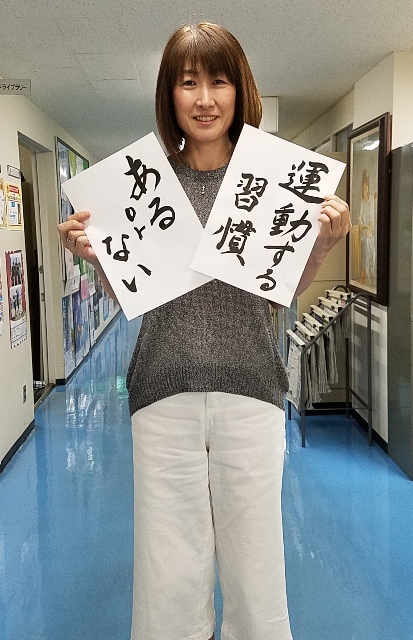 運動する
習慣
ある
or
ない
ライブラリー